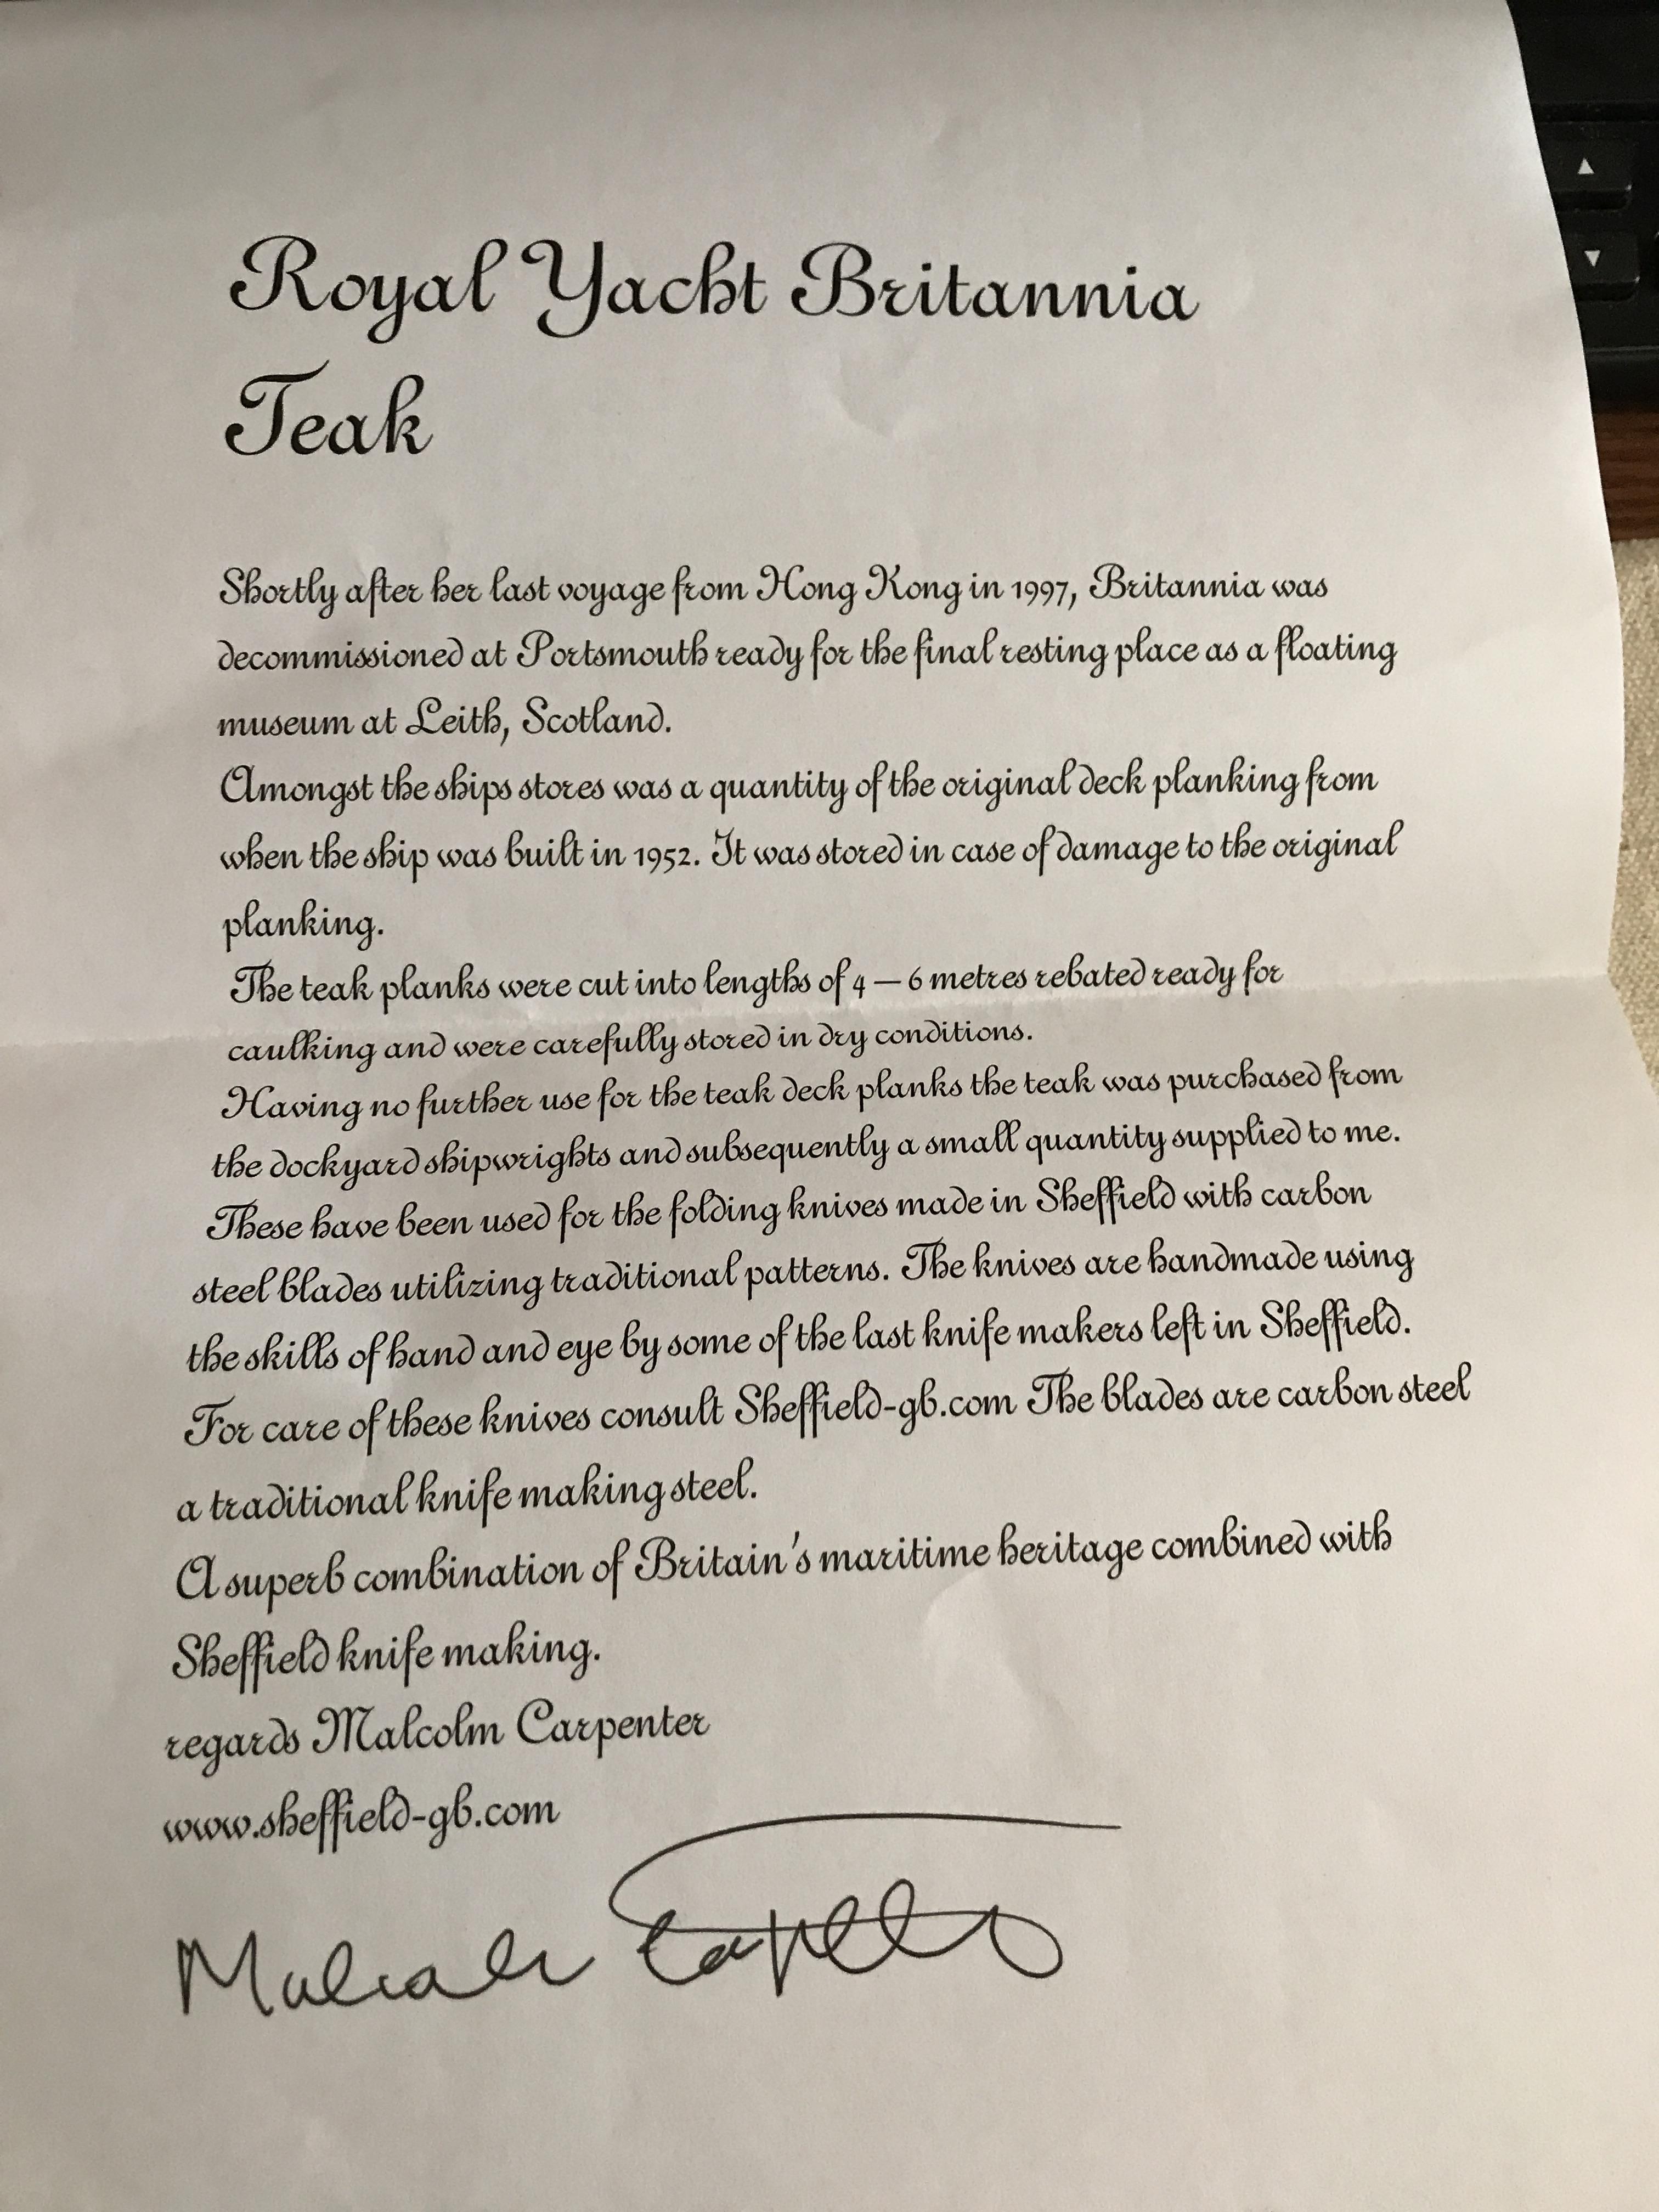 Royal Yacht Britannia
Teak
Shortly after her last voyage from Hong Kong in 1997, Britannia was
decommissioned at Portsmouth ready for the final resting place as a floating
museum at Leith, Scotland.
Amongst the ships stores was a quantity of the original deck planking from
when the ship was built in 1952. It was stored in case of damage to the original
planking.
The teak planks were cut into lengths of 4 – 6 metres rebated ready for
caulking and were carefully stored in dry conditions.
Having no further use for the teak deck planks the teak was purchased from
the dockyard shipwrights and subsequently a small quantity supplied to me.
These have been used for the folding knives made in Sheffield with carbon
steel blades utilizing traditional patterns. The knives are handmade using
the skills of hand and eye by some of the last knife makers left in Sheffield.
For care of these knives consult Sheffield-gb.com The blades are carbon steel
a traditional knife making steel.
A superb combination of Britain's maritime heritage combined with
Sheffield knife making.
regards Malcolm Carpenter
www.sheffield-gb.com